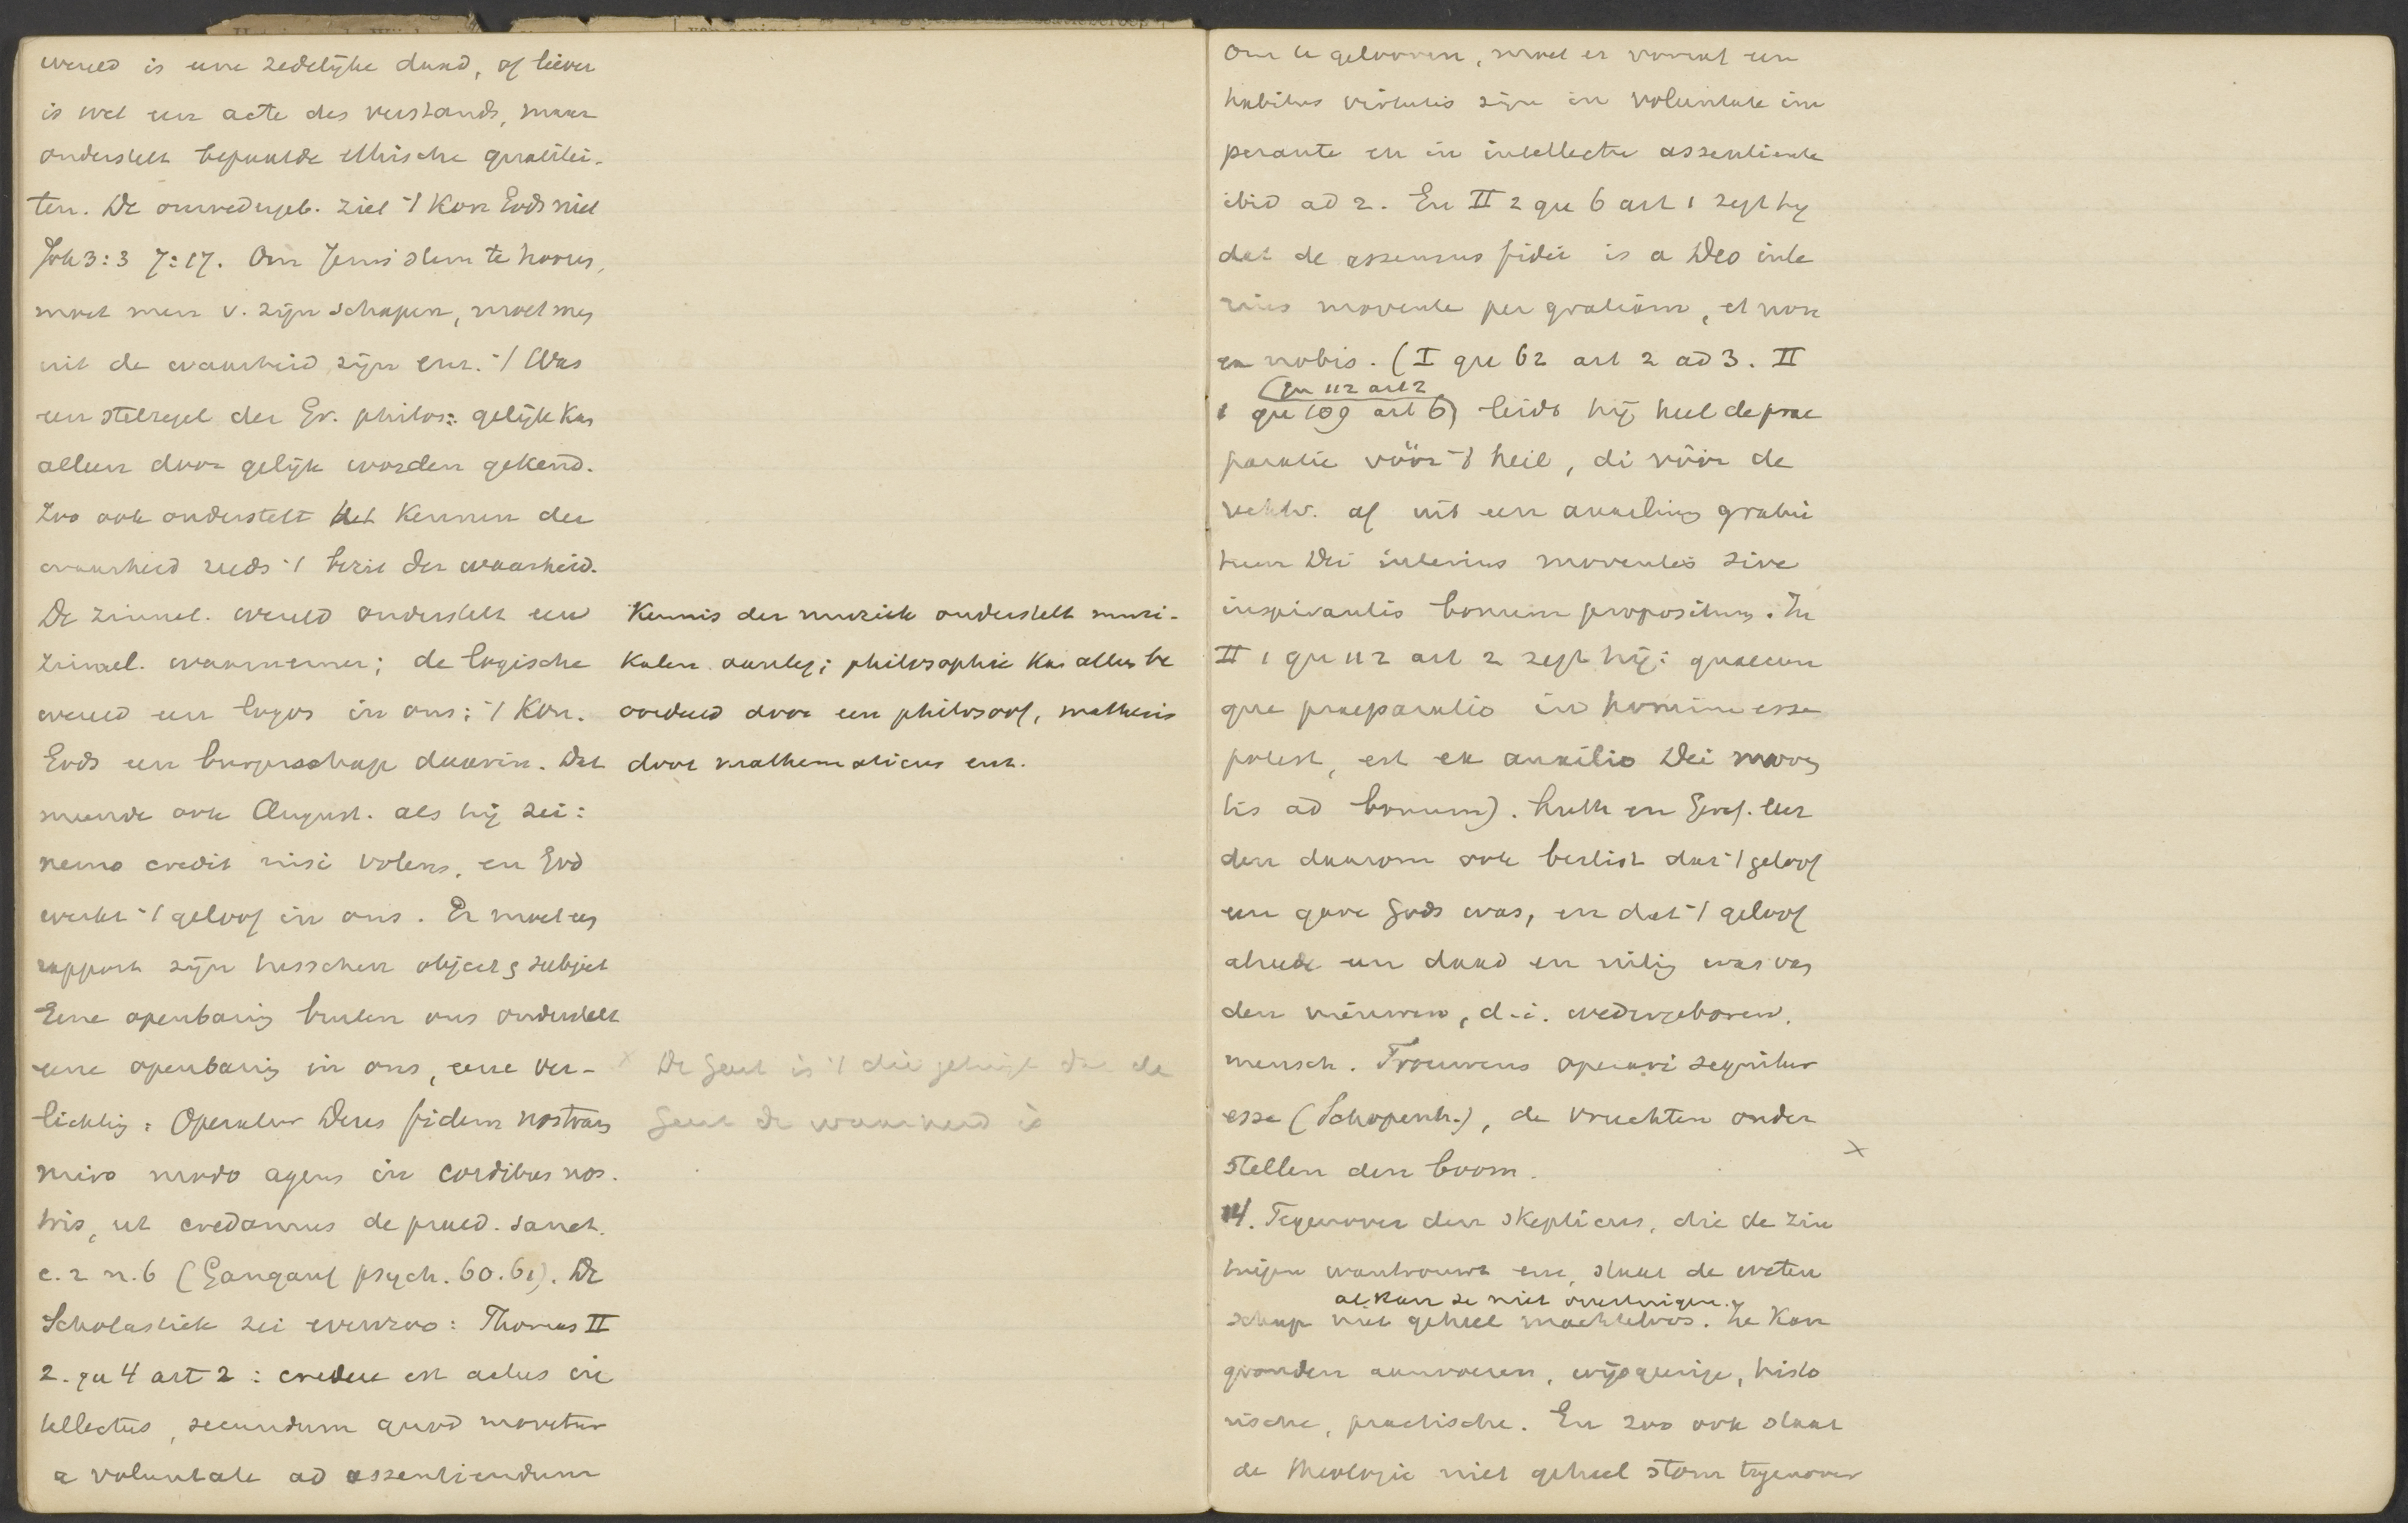 wereld is eene zedelijke daad, of liever
is wel een acte des verstands, maar
onderstelt bepaalde ethische qualitei-
ten. De onwedergeb. ziet 't Kon Gods niet
Joh 3:3 7:17. Om Jezus stem te hooren,
moet men v. zijn schapen, moet men
uit de waarheid zijn enz. 't Was
een stelregel der Gr. philos: gelijk kan
alleen door gelijk worden gekend.
Zoo ook onderstelt het kennen der
waarheid reeds 't bezit der waarheid.
De zinnel. wereld onderstelt een
zinnel. waarnemer; de logische
wereld een logos in ons; 't Kon.
Gods een burgerschap daarin. Dat
meende ook August. als hij zei:
nemo credit nisi volens, en God
werkt 't geloof in ons. Er moet een
rapport zijn tusschen object & subject
Eene openbaring buiten ons onderstelt
eene openbaring in ons, eene ver-
lichting: Operatur Deus fidem nostram
miro modo agens in cordibus nos-
tris, ut credamus de praed. sanct.
c. 2 n. 6 (Gangauf psych. 60.61). De
Scholastiek zei evenzoo: Thomas II
2. qu 4 art 2: credere est actus in
tellectus, secundum quod movetur
a voluntate ad assentiendum
Kennis der muziek onderstelt muzi-
kalen aanleg; philosophie kan alleen be
oordeeld door een philosoof, mathesis
door mathematicus enz.
x De Geest is 't die getuigt dat de
Geest de waarheid is
Om te gelooven, moet er vooraf een
habitus virtutis zijn in voluntate im
perante en in intellectu assentiente
ibid ad 2. En II 2 qu 6 art 1 zegt hij
dat de assensus fidei is a Deo inte
rius movente per gratiam, et non
ex nobis. (I qu 62 art 2 ad 3. II
(qu 112 art 2
1 qu 109 art 6) leidt hij heel de prae
paratie vóór 't heil, di vóór de
rechtv. af uit een auxilium gratui
tum Dei interius moventis sive
inspirantis bonum propositum. In
II 1 qu 112 art 2 zegt hij: quaecun
que praeparatio in homine esse
potest, est ex auxilio Dei moven
tis ad bonum). Luth en Geref. leer
den daarom ook beslist dat 't geloof
een gave Gods was, en dat 't geloof
alreede een daad en uiting was van
den nieuwen, d.i. wedergeboren,
mensch. Trouwens operari sequitur
esse (Schopenh.), de vruchten onder
stellen den boom. x
14. Tegenover den skepticus, die de zin
tuigen wantrouwt enz, staat de weten
al kan ze niet overtuigen.
schap niet geheel machteloos. Ze kan
gronden aanvoeren, wijsgeerige, histo
rische, practische. En zoo ook staat
de theologie niet geheel stom tegenover